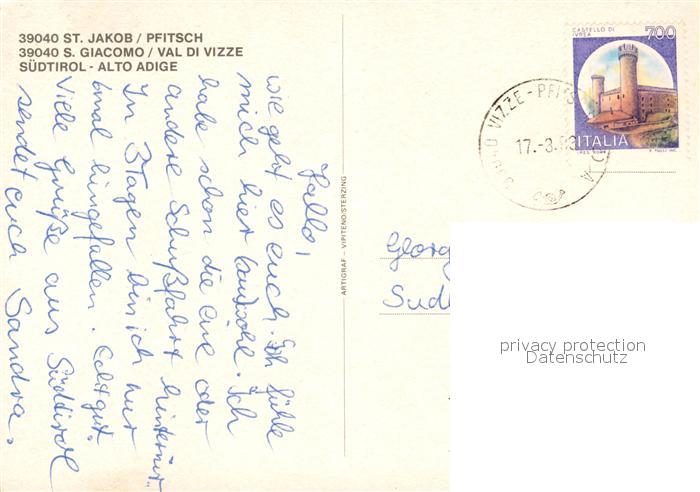 39040 ST. JAKOB / PFITSCH
39040 S. GIACOMO / VAL DI VIZZE
SÜDTIROL - ALTO ADIGE
Hallo,
wie geht es euch. Ich fühle
mich hier sauwohl. Ich
habe schon die eine oder
andere Schußfahrt hinter mir.
In 3 Tagen bin ich nur
1 mal hingefallen. Echt gut.
Viele Grüße aus Südtirol
sendet euch Sandra.
ARTIGRAF - VIPITENO/STERZING
CASTELLO DI
IVREA
700
ITALIA
VIZZE - PFITS
17.-3.
Georg
Sud
privacy protection
Datenschutz